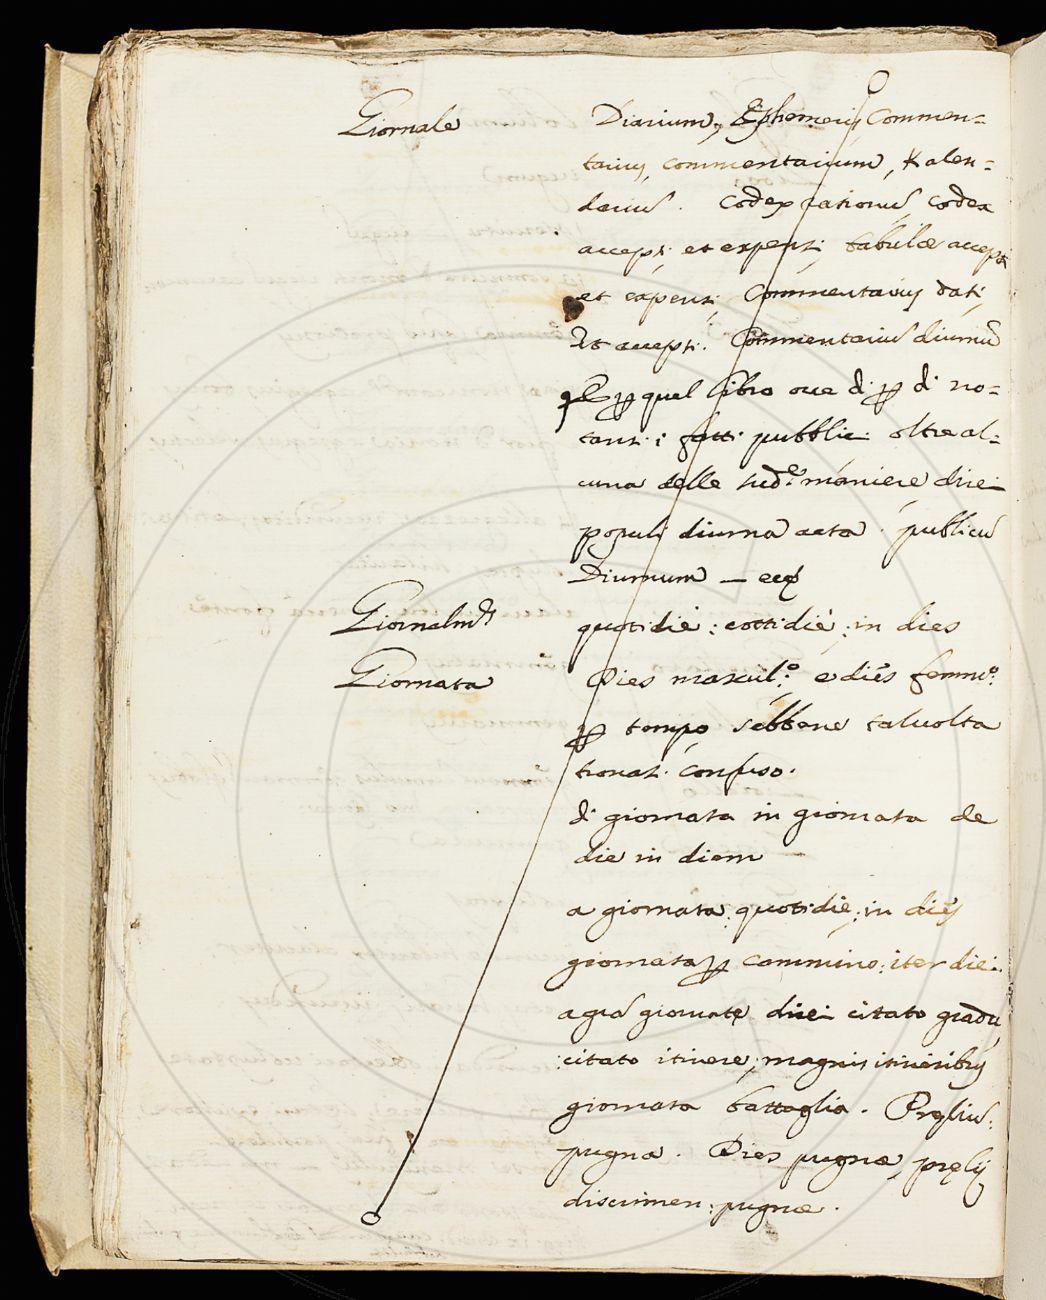 Giornale Diarium, Ephemeris, Commen=
tarius, commentarium, Kalen=
dariũ. Codex rationũ, codex
accepti, et expensi, tabulæ accepti
et expensi, Commentarius dati,
Et accepti. Commentariũ diurnũ
E ꝑ quel libro ove di ꝑ di no=
tansi i fatti pubblici oltre al=
cuna delle sud.e maniere dicei
populi diurna acta. publicũ
Diurnum —
Giornalm.te quotidie; cottidie; in dies
Giornata Dies mascul.o e dies femm.o
ꝑ tempo sebbene talvolta
trovasi confuso.
di giornata in giornata de
die in diem
a giornata; quotidie; in dies
giornata ꝑ cammino; iter diei
a grã giornate dicei citato gradu
citato itinere; magnis itineribus
giornata battaglia. Pręliũ;
pugna. Dies pugnæ, pręlij
discrimen; pugnæ.